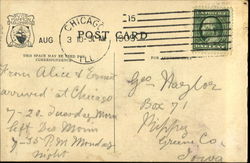 CHICAGO
ILL
AUG
15
POST CARD
THIS SPACE MAY BE USED FOR
CORRESPONDENCE
From Alice & Ernest
arrived at Chicago
7-20 Tuesday Morn
left Des Moin
9-35 P.M. Monday
Night
Geo Naylor
Box 71
Rippey
Greene Co.
Iowa